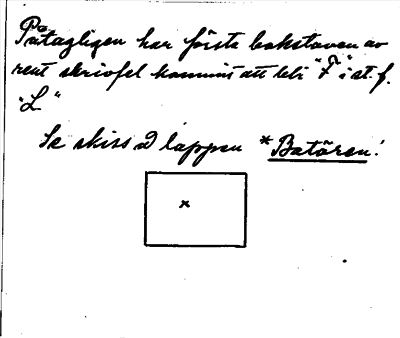 Påtagligen har första bokstaven av
rent skrivfel kommit att bli "F" i st. f.
"L"
Se skiss å lappen *Batören!
x